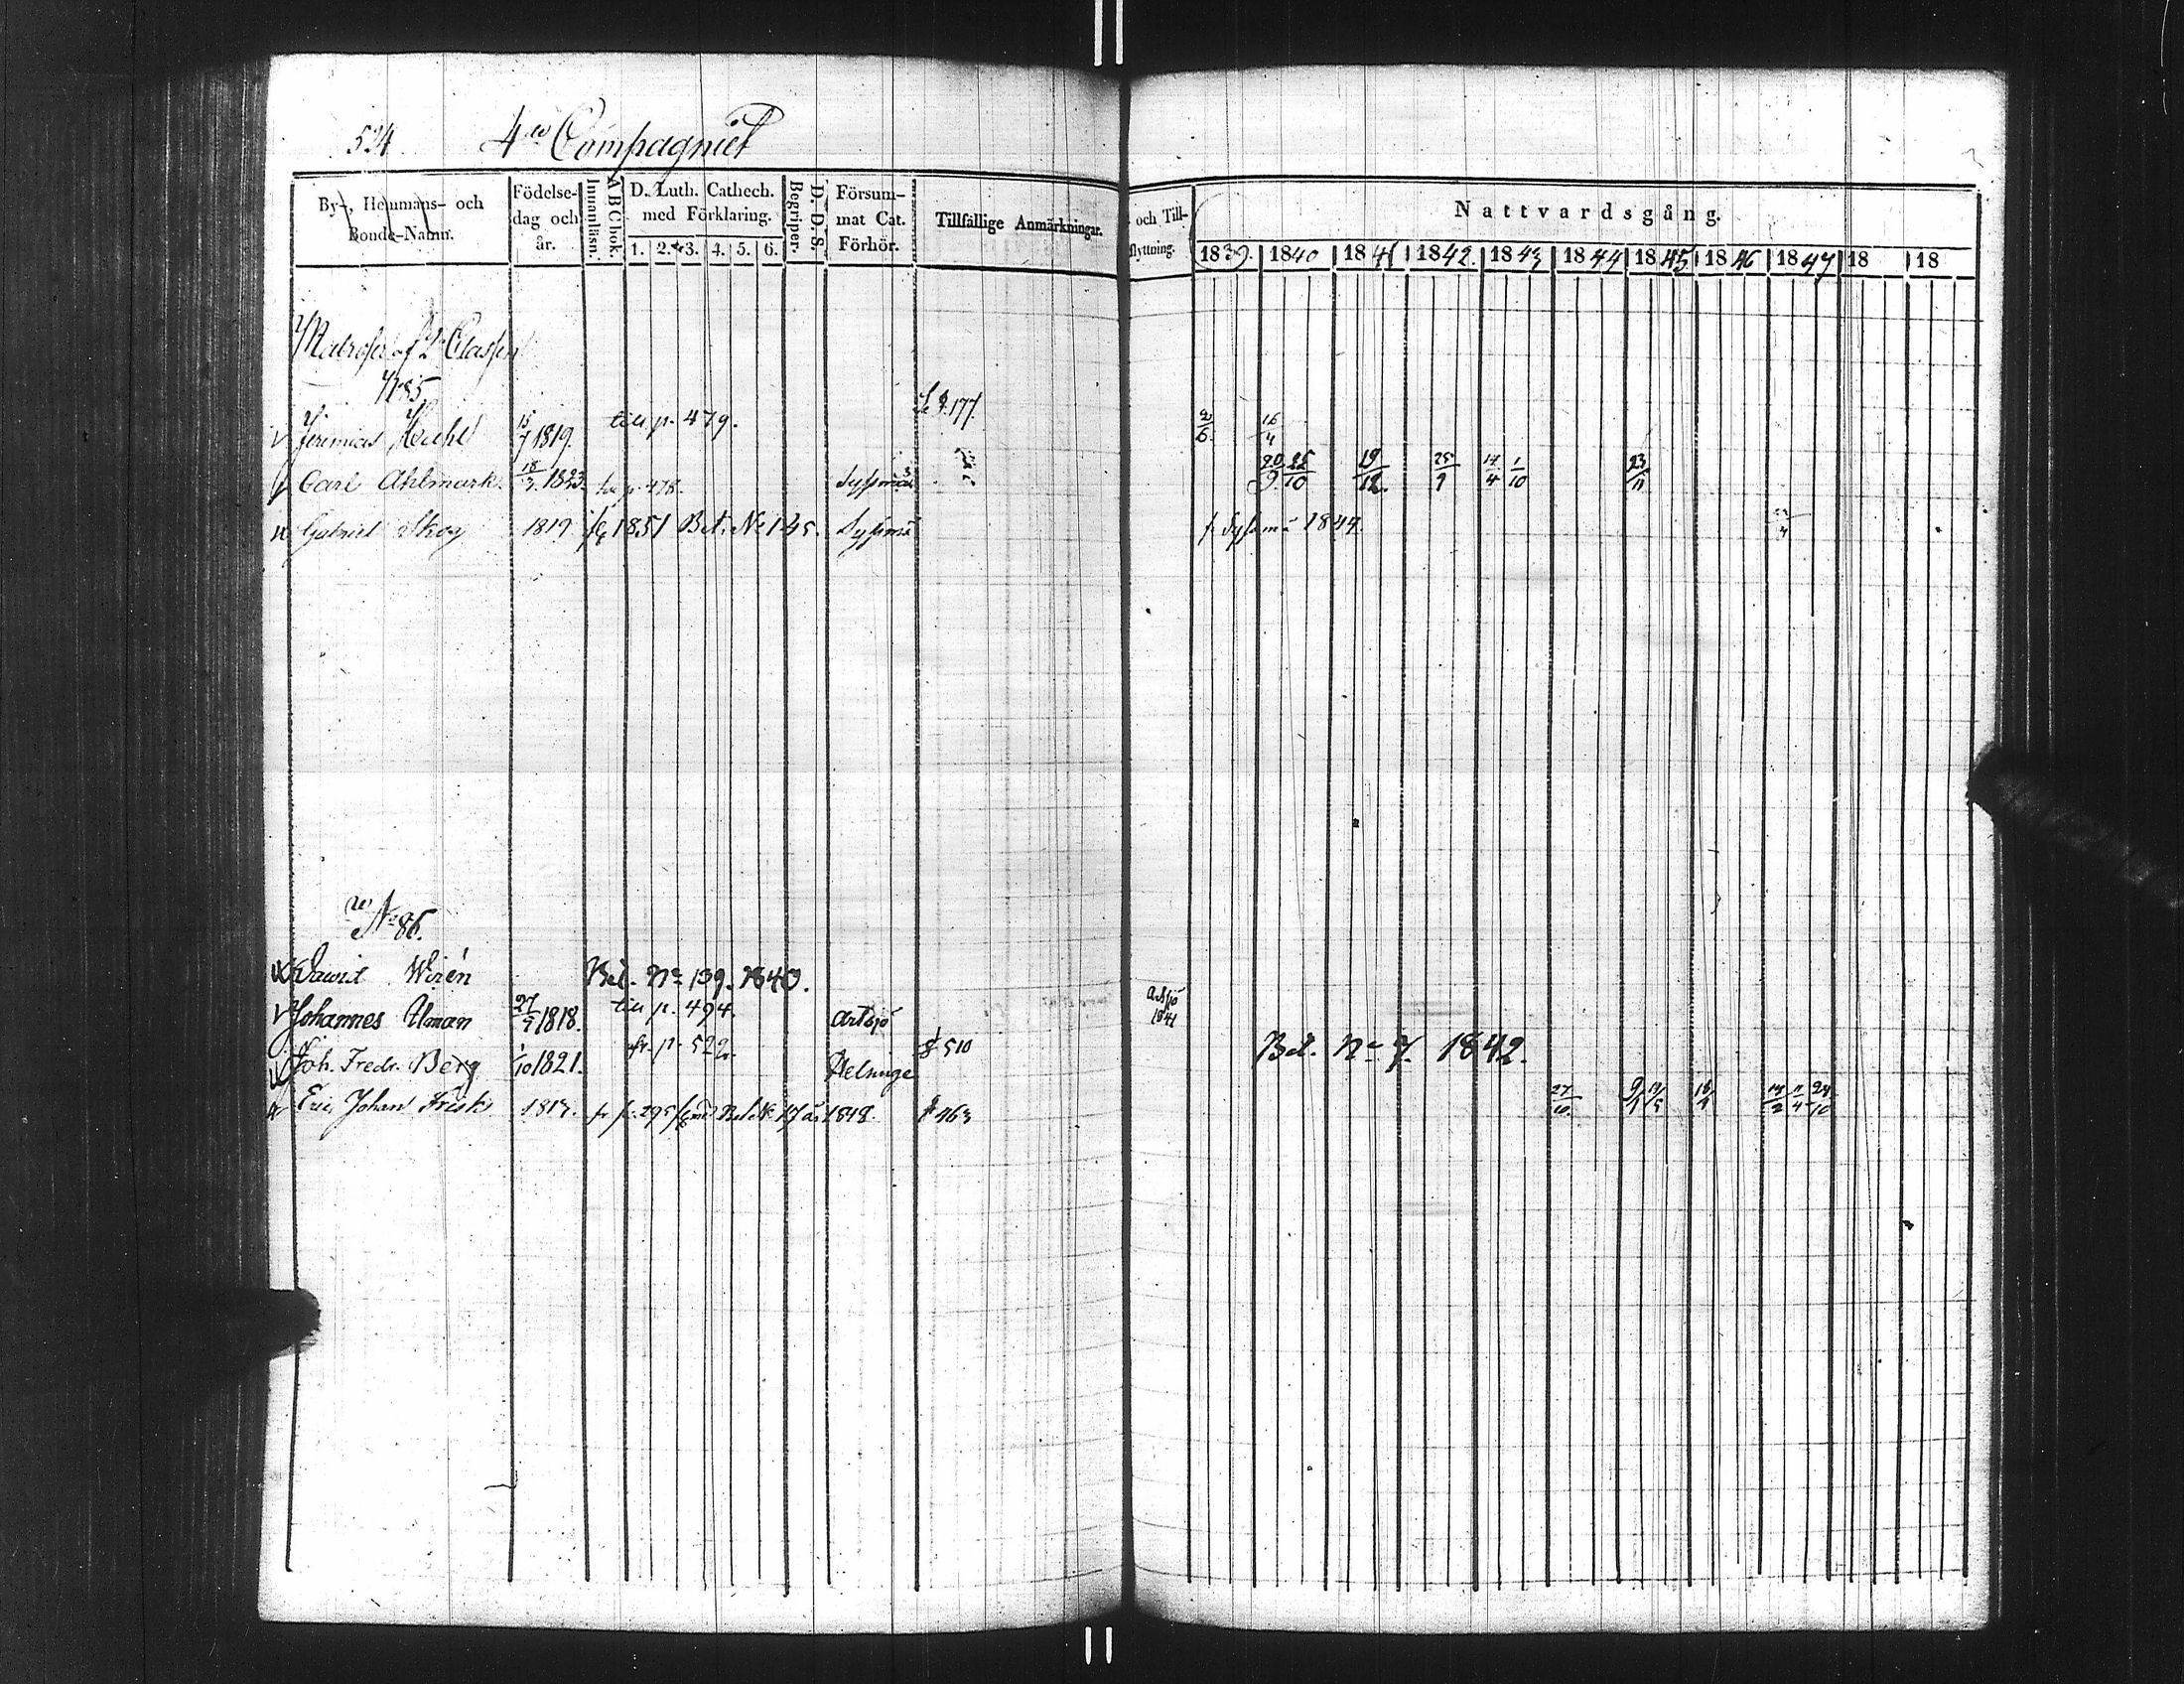 524 4de Compagniet
By-, Hemmans- och Bonde-Namn.
Födelse-dag och år.
Innanläsn.
A B C bok.
D. Luth. Cathech. med Förklaring.
1. 2. 3. 4. 5. 6.
Begriper.
D. D. S.
Försum-mat Cat. Förhör.
Tillfällige Anmärkningar.
och Till-flyttning.
Nattvardsgång.
1839. 1840 1841 1842. 1843 1844 1845 1846 1847 18 18
Matroser af 2 Classen
N 85
177.
Jeremias 15/7 1819. till p. 479. 2/6. 16/4
Carl Ahlmark. 18/3. 1823. p. 478. Syssmä 20/9. 25/10 19/12. 25/9 14/4 1/10 23/11
Gabriel Skog 1819 1851 Bet. No 145. Syssmä f. Syssmä 1847.
No 86.
David Wirén Bet. No 139. 1840.
Johannes Uman 27/9 1818. till p. 494. Artsjö Artsjö 1841
Joh. Fredr. Berg 1/10 1821. fr. p. 522. Helsinge 510 Bet. No 7. 1842.
Eric Johan Frisk 1817. fr p. 295 Bet No 17 år 1848 463 27/10. 9/4 19/5 18/4 14/2 11/4 24/10